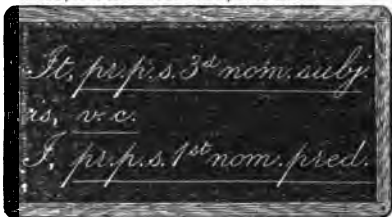 It, pr. p. s. 3d nom. subj.
is, v. c.
I, pr. p. s. 1st nom. pred.